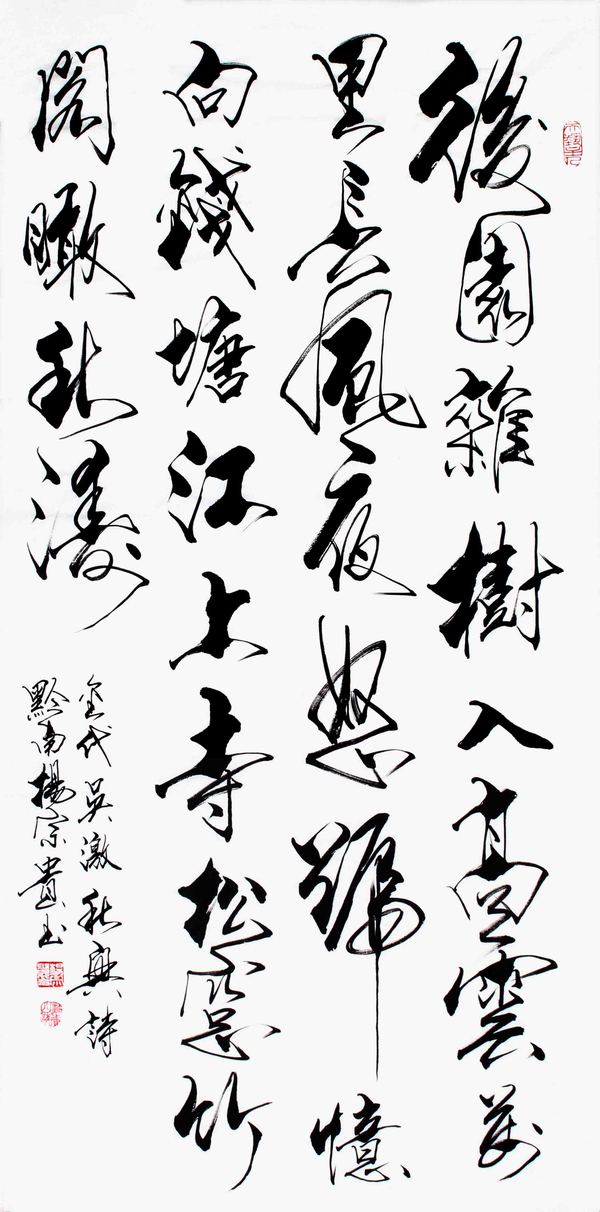 後園雜樹入高雲萬
里長風夜怒號憶
向錢塘江上寺松窗竹
閣瞰秋濤
金代吳激秋興詩
黔南楊宗貴書